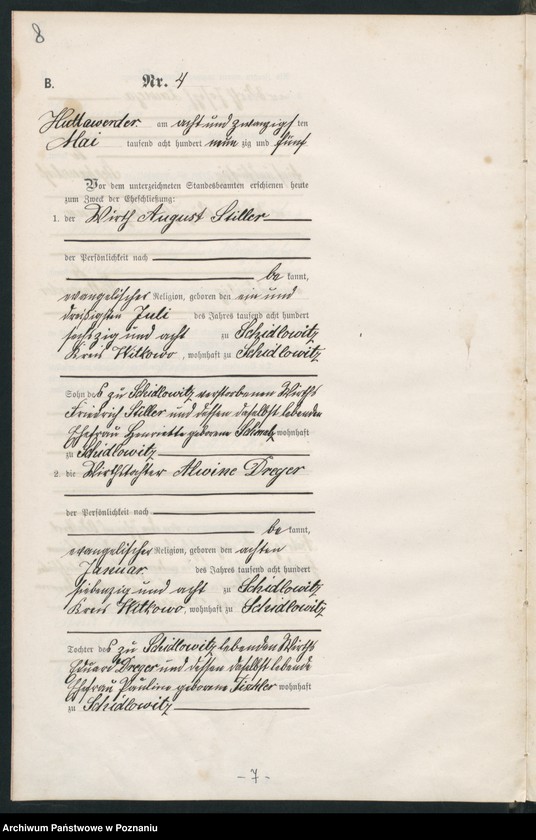 8
B. Nr. 4
Huttawerder am acht und zwanzigs ten
Mai tausend acht hundert neun zig und fünf
Vor dem unterzeichneten Standesbeamten erschienen heute
zum Zweck der Eheschließung:
1. der Wirth August Stiller
der Persönlichkeit nach
be kannt,
evangelischer Religion, geboren den ein und
dreißigsten Juli des Jahres tausend acht hundert
sechszig und acht zu Schidlowitz
Kreis Witkowo, wohnhaft zu Schidlowitz
Sohn des zu Schidlowitz verstorbenen Wirths
Friedrich Stiller und dessen daselbst lebenden
Ehefrau Henriette geborene wohnhaft
zu Schidlowitz
2. die Wirthstochter Alwine Dreger
der Persönlichkeit nach
be kannt,
evangelischer Religion, geboren den achten
Januar des Jahres tausend acht hundert
siebenzig und acht zu Schidlowitz
Kreis Witkowo, wohnhaft zu Schidlowitz
Tochter des zu Schidlowitz lebenden Wirths
Eduard Dreger und dessen daselbst lebende
Ehefrau Pauline geborene Tischler wohnhaft
zu Schidlowitz
- 7 -
Archiwum Państwowe w Poznaniu